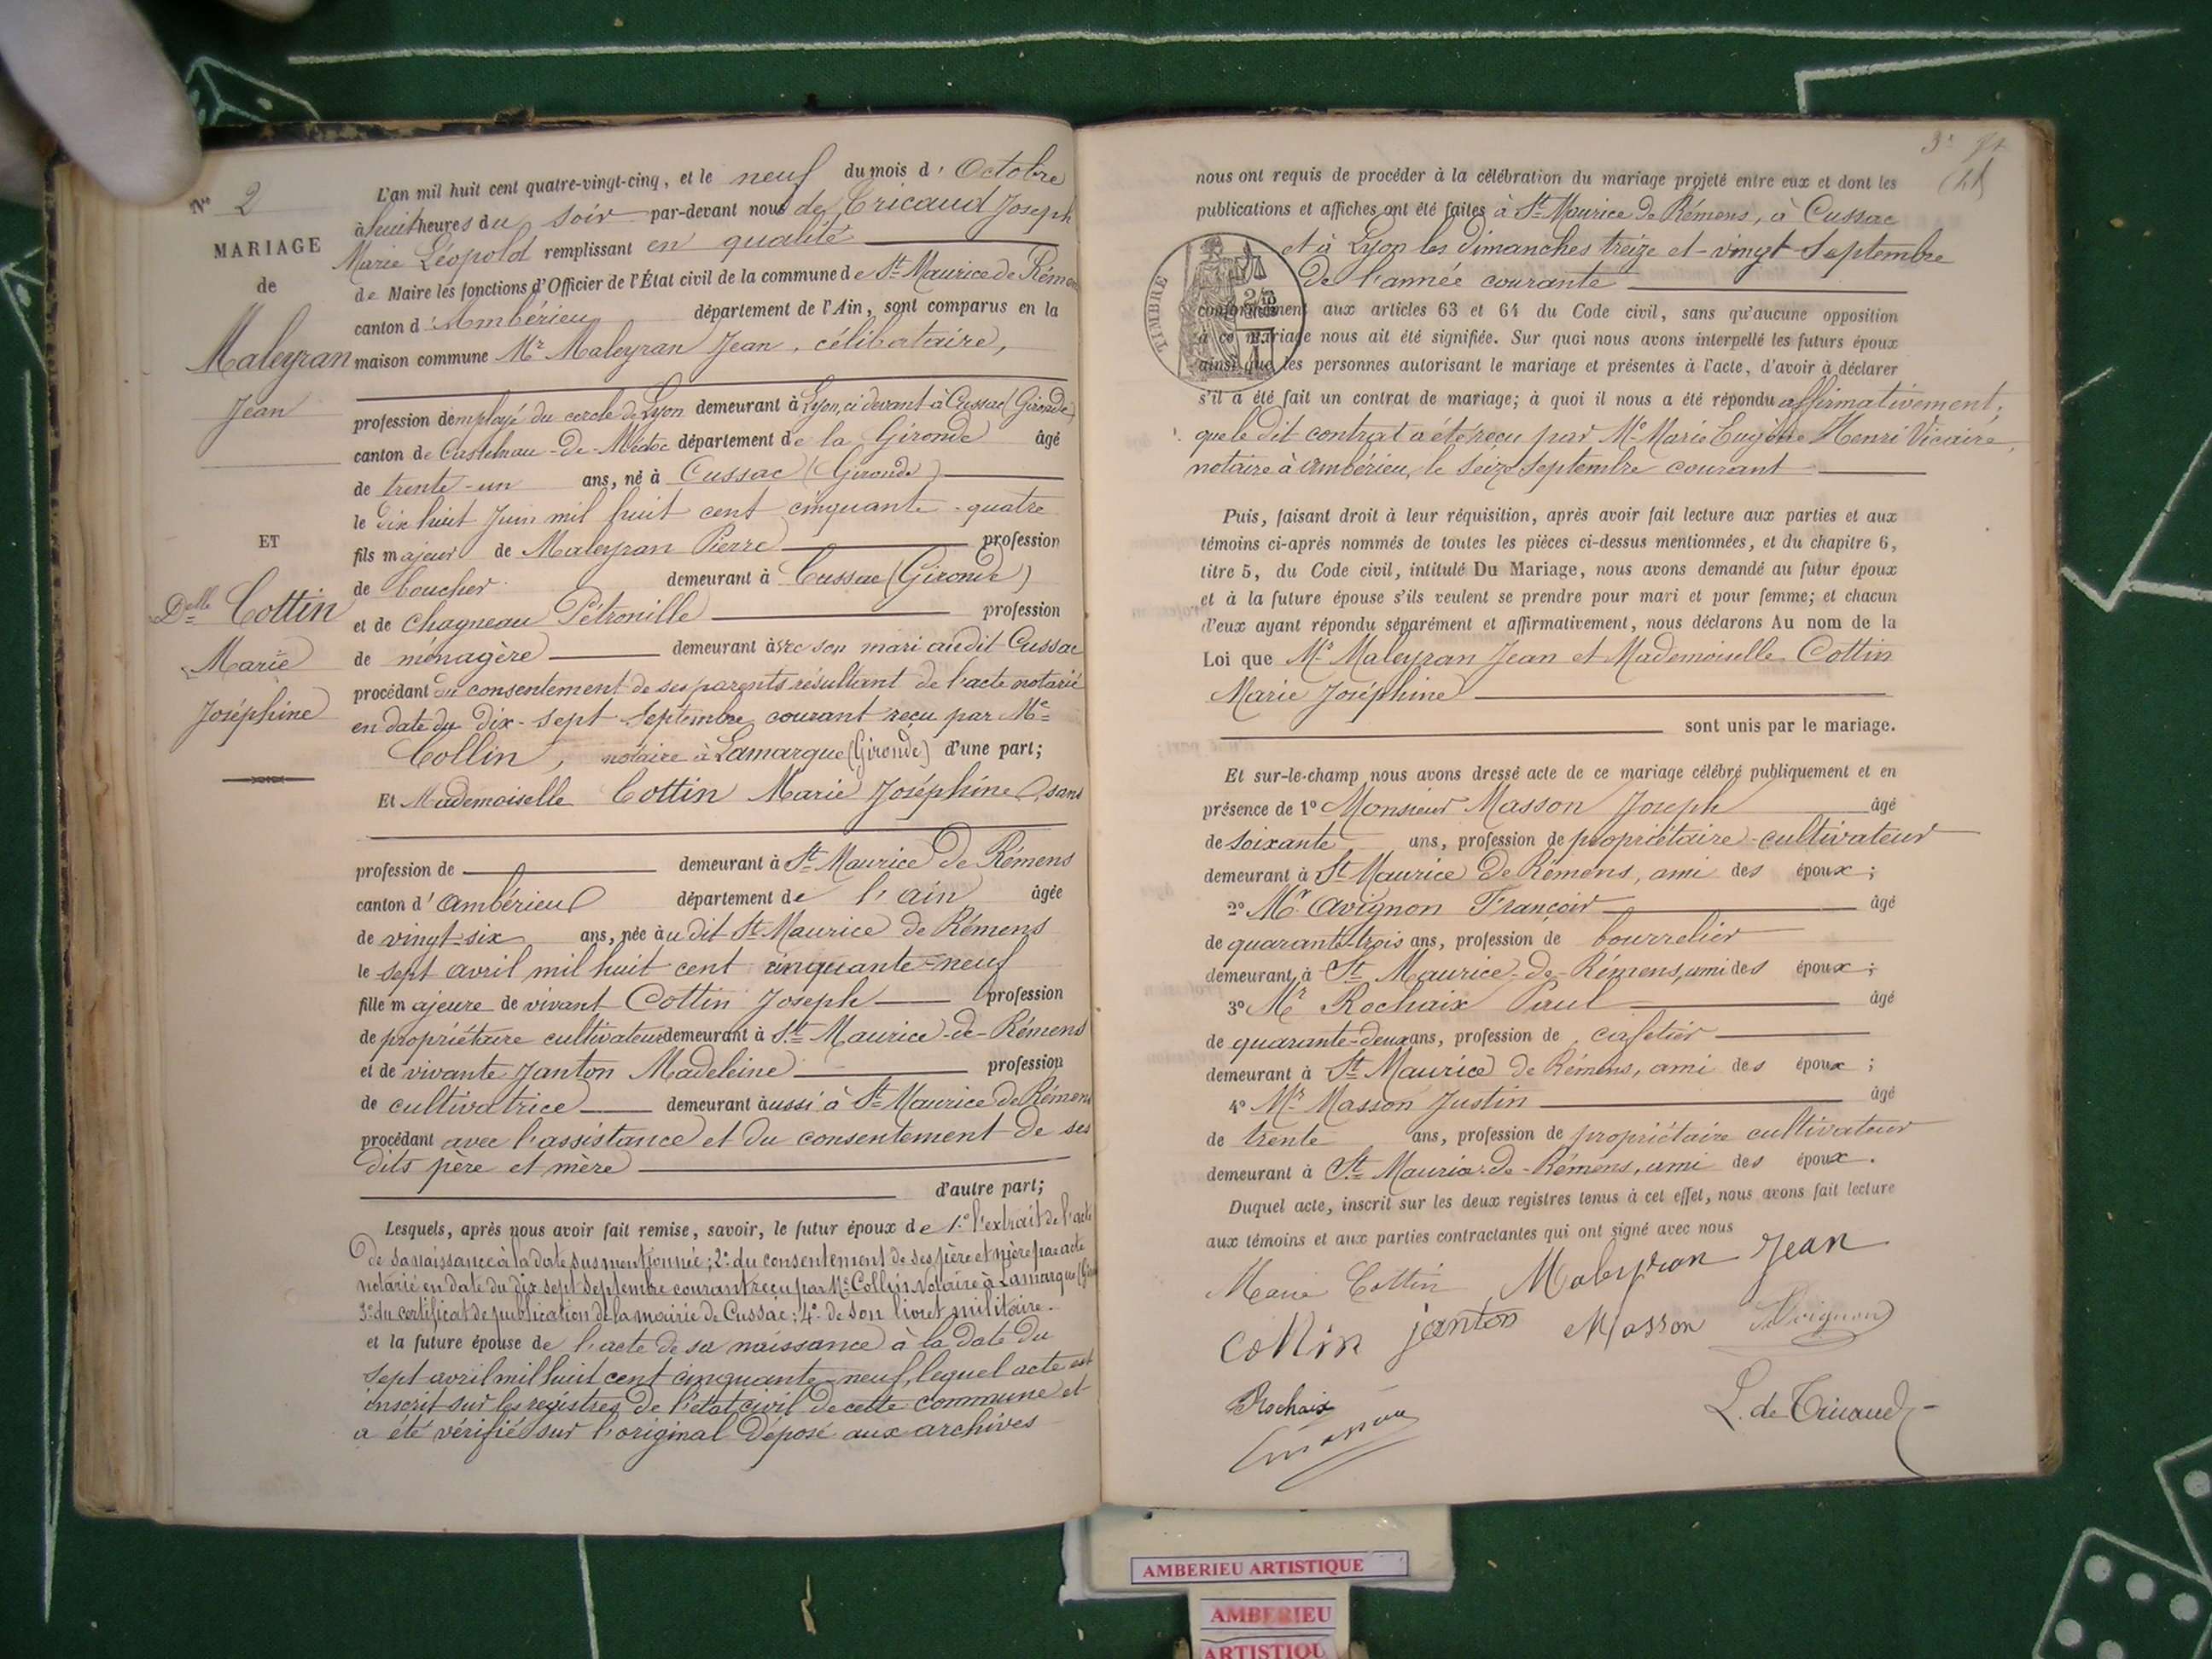 Nº 2
MARIAGE
de
Maleyran
Jean
ET
Delle Cottin
Marie
Joséphine
L'an mil huit cent quatre-vingt-cinq, et le neuf du mois d' Octobre
à huit heures du soir par-devant nous de Tricaud Joseph
Marie Léopold remplissant en qualité
de Maire les fonctions d'Officier de l'État civil de la commune de St Maurice de Rémens
canton d'Ambérieu département de l'Ain, sont comparus en la
maison commune Mr Maleyran Jean, célibataire,
profession d'employé du cercle de Lyon demeurant à Lyon, ci devant à Cussac (Gironde)
canton de Castelnau-de-Médoc département de la Gironde âgé
de trente-un ans, né à Cussac (Gironde)
le dix huit Juin mil huit cent cinquante-quatre
fils majeur de Maleyran Pierre profession
de boucher demeurant à Cussac (Gironde)
et de Chagneau Pétronille profession
de ménagère demeurant avec son mari audit Cussac
procédant du consentement de ses parents résultant de l'acte notarié
en date du dix-sept Septembre courant reçu par Me
Collin, notaire à Lamarque (Gironde) d'une part;
Et Mademoiselle Cottin Marie Joséphine, sans
profession de demeurant à St Maurice de Rémens
canton d'Ambérieu département de l'ain âgée
de vingt-six ans, née audit St Maurice de Rémens
le sept avril mil huit cent cinquante-neuf
fille majeure de vivant Cottin Joseph profession
de propriétaire cultivateur demeurant à St Maurice-de-Rémens
et de vivante Janton Madeleine profession
de cultivatrice demeurant aussi à St Maurice de Rémens
procédant avec l'assistance et du consentement de ses
dits père et mère
d'autre part;
Lesquels, après nous avoir fait remise, savoir, le futur époux de 1º l'extrait de l'acte
de sa naissance à la date susmentionnée; 2º du consentement de ses père et mère par acte
notarié en date du dix sept Septembre courant reçu par Me Collin Notaire à Lamarque
3º du certificat de publication de la mairie de Cussac; 4º de son livret militaire.
et la future épouse de l'acte de sa naissance à la date du
sept avril mil huit cent cinquante-neuf, lequel acte est
inscrit sur les registres de l'état civil de cette commune et
a été vérifié sur l'original déposé aux archives
nous ont requis de procéder à la célébration du mariage projeté entre eux et dont les
publications et affiches ont été faites à St Maurice de Rémens, à Cussac
et à Lyon les dimanches treize et vingt Septembre
de l'année courante
TIMBRE
conformément aux articles 63 et 64 du Code civil, sans qu'aucune opposition
à ce mariage nous ait été signifiée. Sur quoi nous avons interpellé les futurs époux
ainsi que les personnes autorisant le mariage et présentes à l'acte, d'avoir à déclarer
s'il a été fait un contrat de mariage; à quoi il nous a été répondu affirmativement,
que le dit contrat a été reçu par Me Marie Eugène Henri Vicaire,
notaire à Ambérieu, le seize septembre courant
Puis, faisant droit à leur réquisition, après avoir fait lecture aux parties et aux
témoins ci-après nommés de toutes les pièces ci-dessus mentionnées, et du chapitre 6,
titre 5, du Code civil, intitulé Du Mariage, nous avons demandé au futur époux
et à la future épouse s'ils veulent se prendre pour mari et pour femme; et chacun
d'eux ayant répondu séparément et affirmativement, nous déclarons Au nom de la
Loi que Mr Maleyran Jean et Mademoiselle Cottin
Marie Joséphine
sont unis par le mariage.
Et sur-le-champ nous avons dressé acte de ce mariage célébré publiquement et en
présence de 1º Monsieur Masson Joseph âgé
de soixante ans, profession de propriétaire-cultivateur
demeurant à St Maurice de Rémens, ami des époux;
2º Mr Avignon François âgé
de quarante-trois ans, profession de bourrelier
demeurant à St Maurice-de-Rémens, ami des époux;
3º Mr Rochaix Paul âgé
de quarante-deux ans, profession de cafetier
demeurant à St Maurice de Rémens, ami des époux;
4º Mr Masson Justin âgé
de trente ans, profession de propriétaire cultivateur
demeurant à St Maurice-de-Rémens, ami des époux.
Duquel acte, inscrit sur les deux registres tenus à cet effet, nous avons fait lecture
aux témoins et aux parties contractantes qui ont signé avec nous
Marie Cottin Maleyran Jean
Cottin janton Masson Avignon
Rochaix L. de Tricaud
AMBERIEU ARTISTIQUE
AMBERIEU
ARTISTIQU